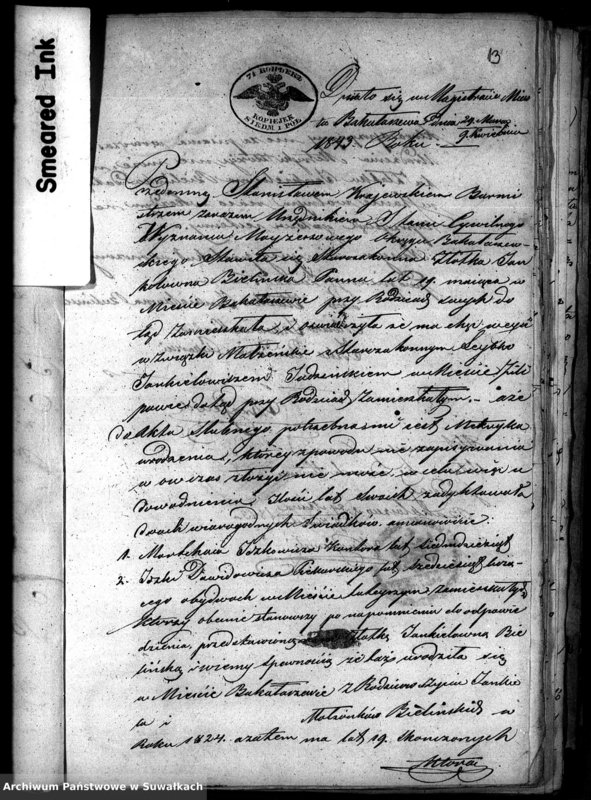 Smeared Ink
13
7½ КОПѢЕКЪ
KOPIEJEK SIEDM I PÓŁ
Działo się w Magistracie Mias
ta Bakałarzewa Dnia 29. Marca
1843 Roku. 9. Kwietnia
Przedemną Stanisławem Krajewskim Burmi
strzem zarazem Urzędnikiem Stanu Cywilnego
Wyznania Moyżeszowego Okręgu Bakałarzew
skiego Stawiła się Starozakonna Złotka Jan
kielowna Bielińska Panna lat 19. mająca w
Mieście Bakałarzewie przy Rodzicach swych do
tąd Zamieszkała, i oświadczyła że ma chęć wejść
w Związki Małżeńskie z Starozakonnym Leybko
Jankielowiczem w Mieście Fili
powie dotąd przy Rodzicach Zamieszkałym. - a że
do Akta Ślubnego potrzebna mi jest Metryka
urodzenia, którey z powodu nie zapisywania
w ow czas złożyć nie może, w celu więc u
dowodnienia Ilość lat Swoich zadyktowała
dwóch wiarogodnych Swiadków, a mianowicie.
1. Mortchaia Iszkowicza Kantora lat siedmdziesiąt
2. Iszki Dawidowicza Piekarskiego lat szedziesiąt licza
cego obydwóch w Mieście tuteyszym Zamieszkałych
Którzy obecnie stanowszy po napomnieniu do odpowie
dzienia, przedstawioną Złotką Jankielowną Bie
lińską i wiemy z pewnością że taż urodziła się
w Mieście Bakałarzewie z Rodziców Oyca Janke
la i Bielińskich w
Roku 1824. a zatem ma lat 19. Skonczonych
Która
Archiwum Państwowe w Suwałkach